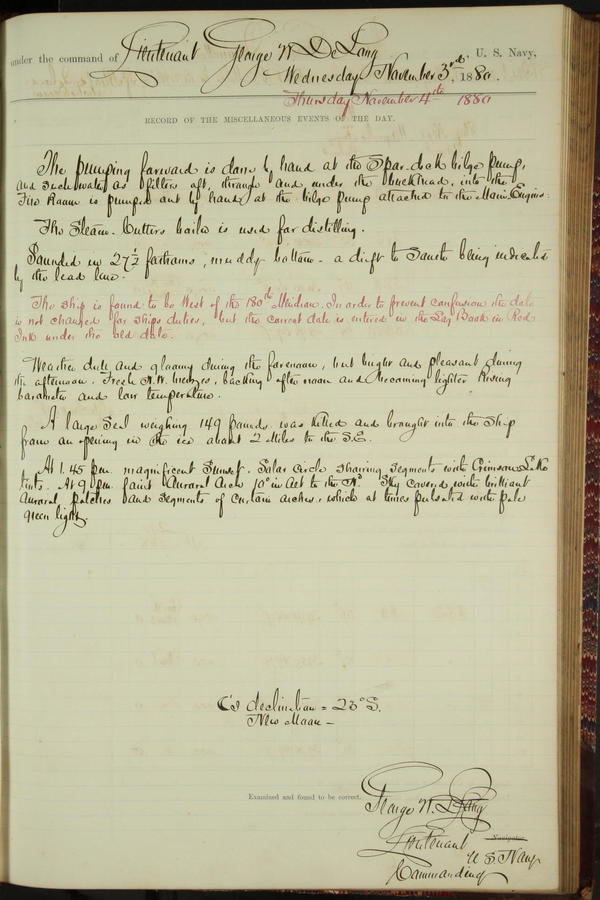 under the command of Lieutenant George W. De Long, U. S. Navy,
Wednesday November 3rd, 1880.
Thursday November 4th 1880
RECORD OF THE MISCELLANEOUS EVENTS OF THE DAY.
The pumping forward is done by hand at the Spar-deck bilge pump,
and such water as filters aft, through and under the bulkhead, into the
Fire Room is pumped out by hand at the bilge pump attached to the Main Engine.
The Steam-Cutters boiler is used for distilling.
Sounded in 27 1/2 fathoms, muddy bottom - a drift to South being indicated
by the lead line.
The ship is found to be West of the 180th Meridian. In order to prevent confusion the date
is not changed for ships duties, but the correct date is entered in the Log Book in Red
Ink under the old date.
Weather dull and gloomy during the forenoon, but bright and pleasant during
the afternoon. Fresh N.W. breezes, backing after noon and becoming lighter. Rising
barometer and low temperature.
A large Seal weighing 149 pounds was killed and brought into the Ship
from an opening in the ice about 2 miles to the S.E.
At 1.45 pm. magnificent Sunset. Solar circle showing segments with Crimson Lake
tints. At 9 pm. faint Auroral Arch 10° in Alt to the Nd. Sky covered with brilliant
Auroral patches and segments of curtain arches, which at times pulsated with pale
green light.
☾'s declination = 23° S.
New Moon -
Examined and found to be correct.
George W. De Long
Lieutenant Navigator.
U S. Navy
Commanding